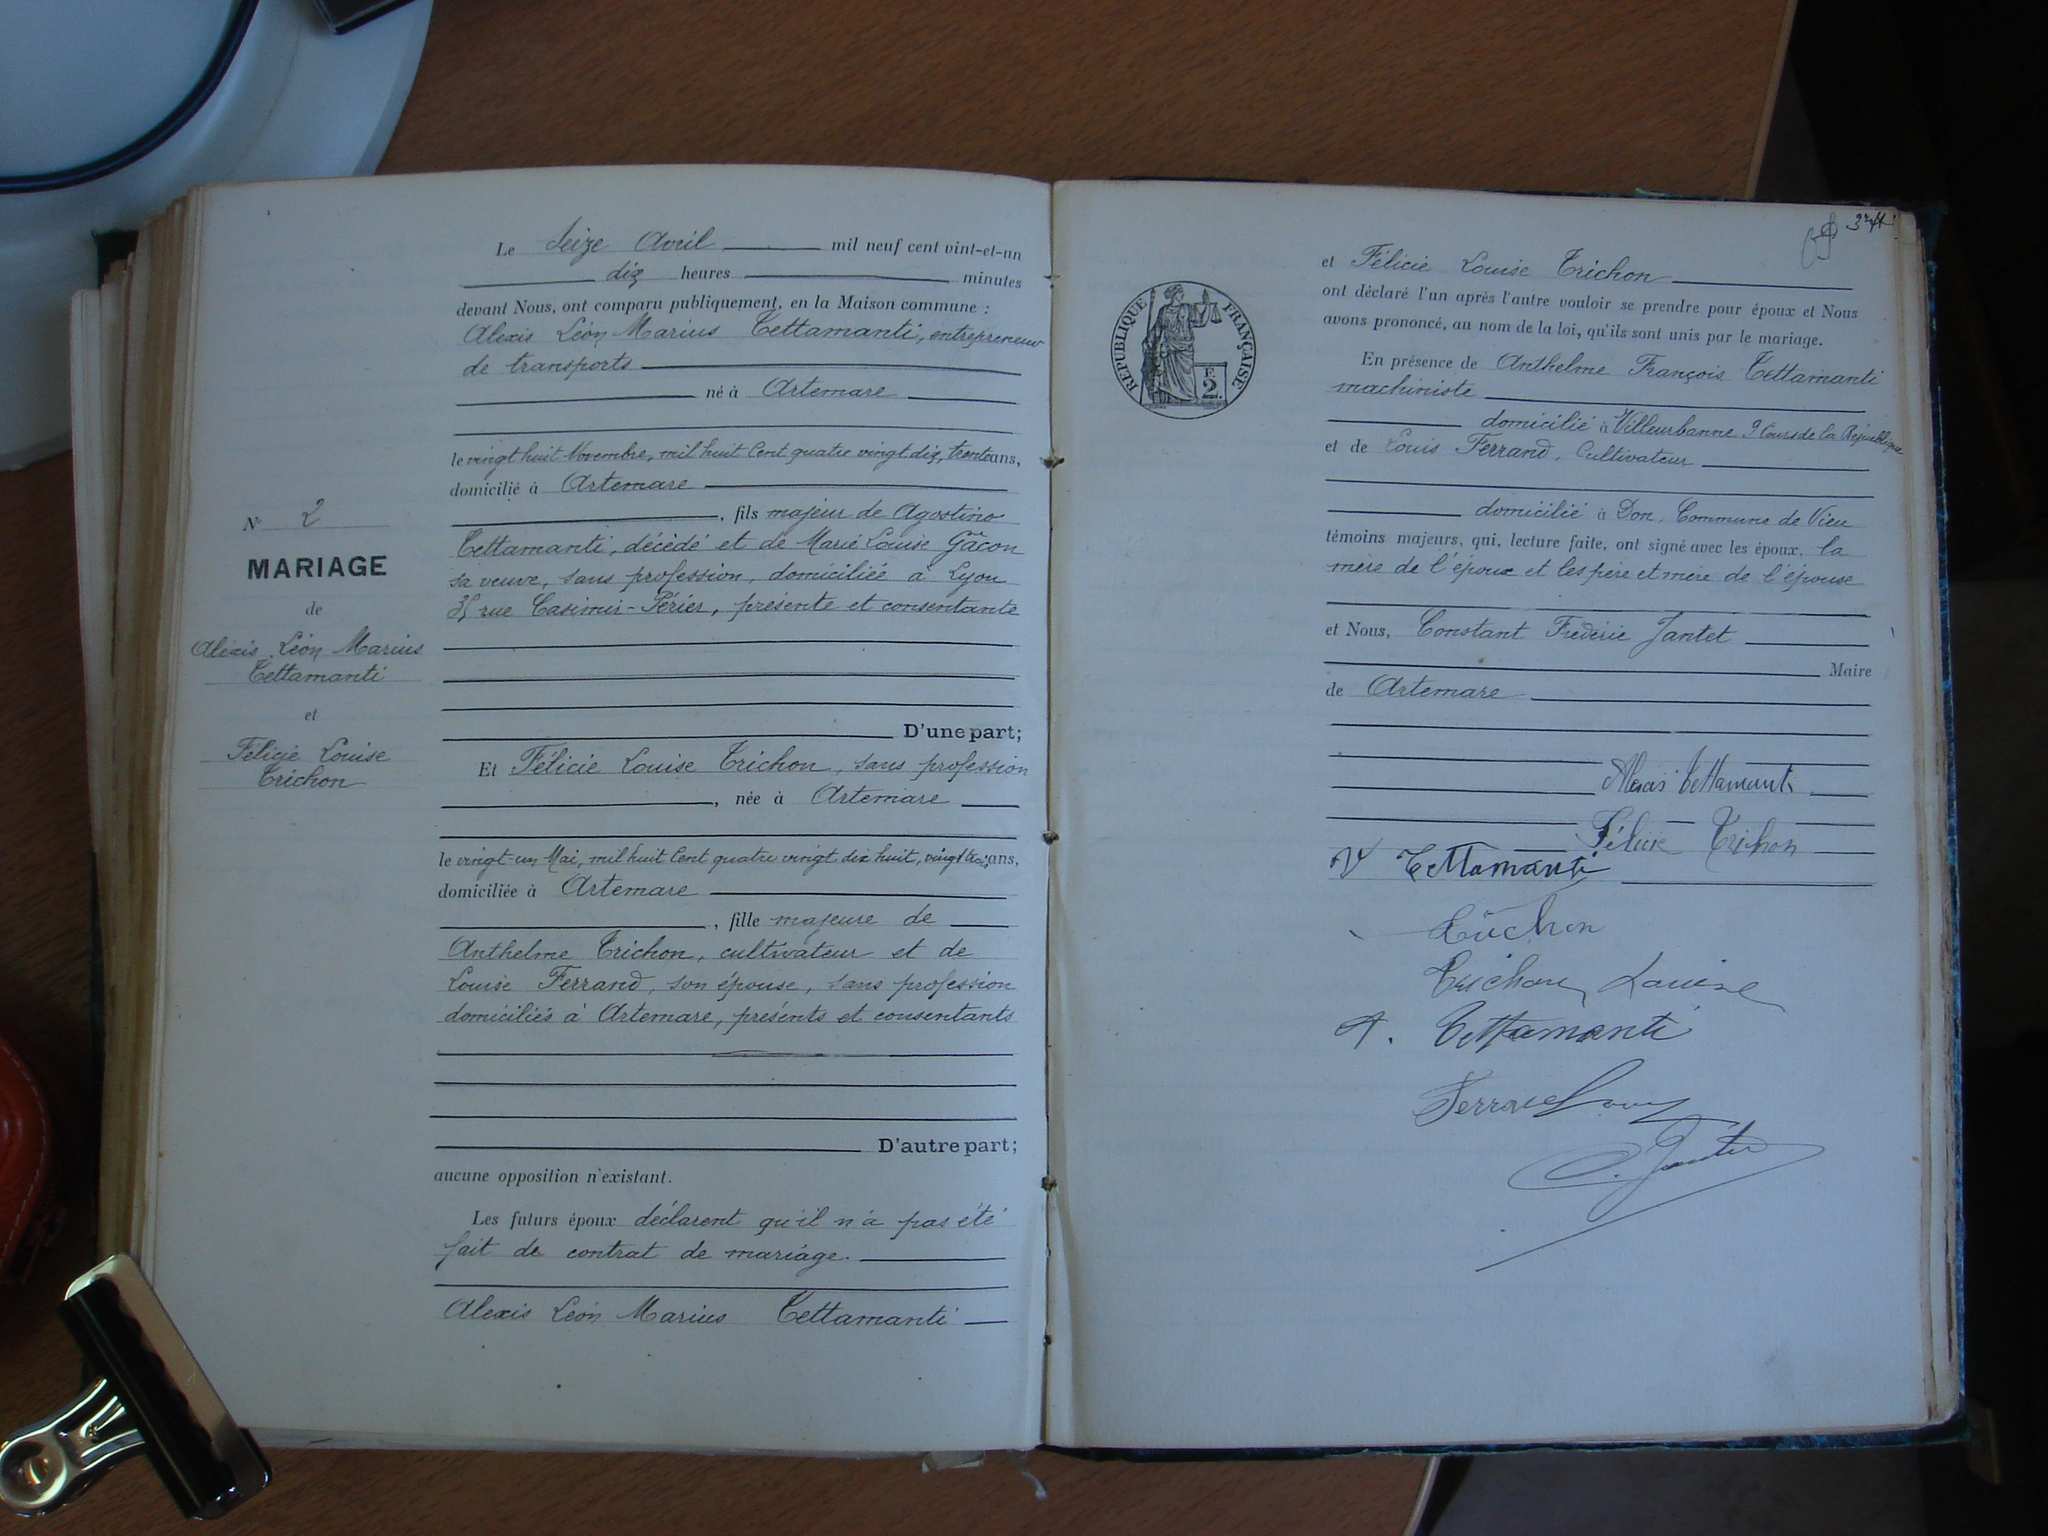 Le Seize Avril mil neuf cent vint-et-un
dix heures minutes
devant Nous, ont comparu publiquement, en la Maison commune :
Alexis Léon Marius Tettamanti, entrepreneur
de transports
né à Artemare
le vingt huit Novembre, mil huit Cent quatre vingt dix, trente ans,
domicilié à Artemare
, fils majeur de Agostino
Tettamanti, décédé et de Marie Louise Gâcon
sa veuve, sans profession, domiciliée à Lyon
rue Casimir-Périer, présente et consentante
D'une part;
Et Félicie Louise Trichon, sans profession
, née à Artemare
le vingt-un Mai, mil huit Cent quatre vingt dix huit, vingt trois ans,
domiciliée à Artemare
, fille majeure de
Anthelme Trichon, cultivateur et de
Louise Ferrand, son épouse, sans profession
domiciliés à Artemare, présents et consentants
D'autre part;
aucune opposition n'existant.
Les futurs époux déclarent qu'il n'a pas été
fait de contrat de mariage.
Alexis Léon Marius Tettamanti
N° 2
MARIAGE
de
Alexis Léon Marius
Tettamanti
et
Félicie Louise
Trichon
RÉPUBLIQUE FRANÇAISE
F.
2
et Félicie Louise Trichon
ont déclaré l'un après l'autre vouloir se prendre pour époux et Nous
avons prononcé, au nom de la loi, qu'ils sont unis par le mariage.
En présence de Anthelme François Tettamanti
machiniste
domicilié à Villeurbanne 9 Cours de la République
et de Louis Ferrand, Cultivateur
domicilié à Don, Commune de Vieu
témoins majeurs, qui, lecture faite, ont signé avec les époux, la
mère de l'époux et les père et mère de l'épouse
et Nous, Constant Frédéric Jantet
Maire
de Artemare
Alexis Tettamanti
Félicie Trichon
Vve Tettamanti
Trichon
Trichon Louise
A. Tettamanti
Ferrand Louis
C. Jantet